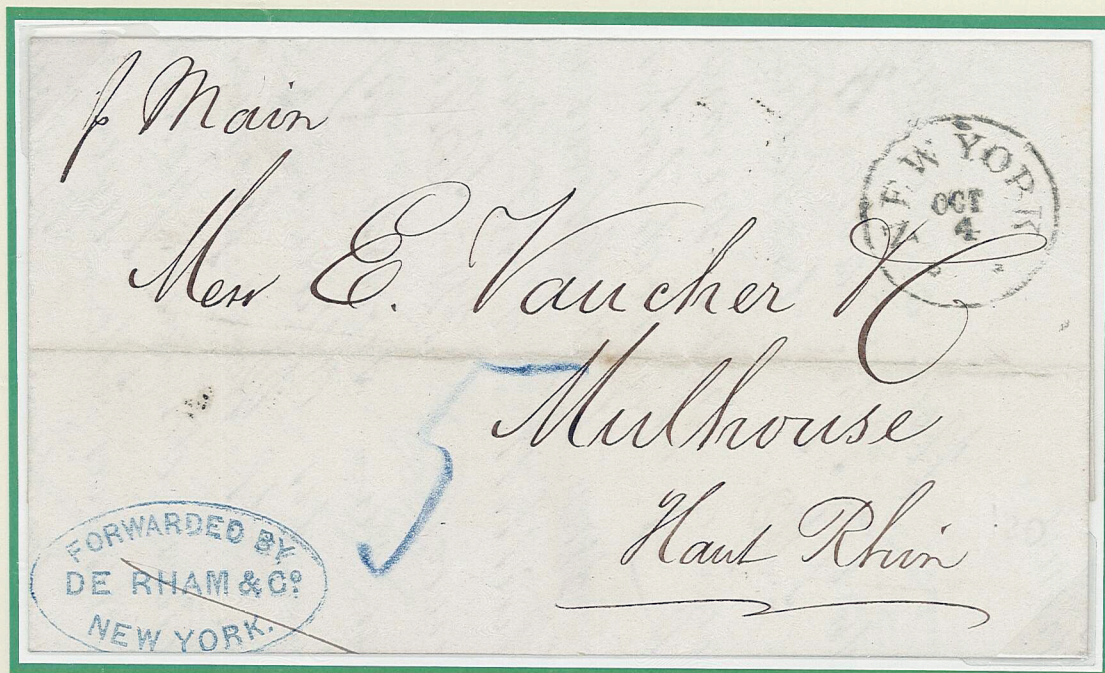 p Main
NEW YORK
OCT
4
Mess E. Vaucher &C
Mulhouse
Haut Rhin
5
FORWARDED BY
DE RHAM & Cº
NEW YORK.